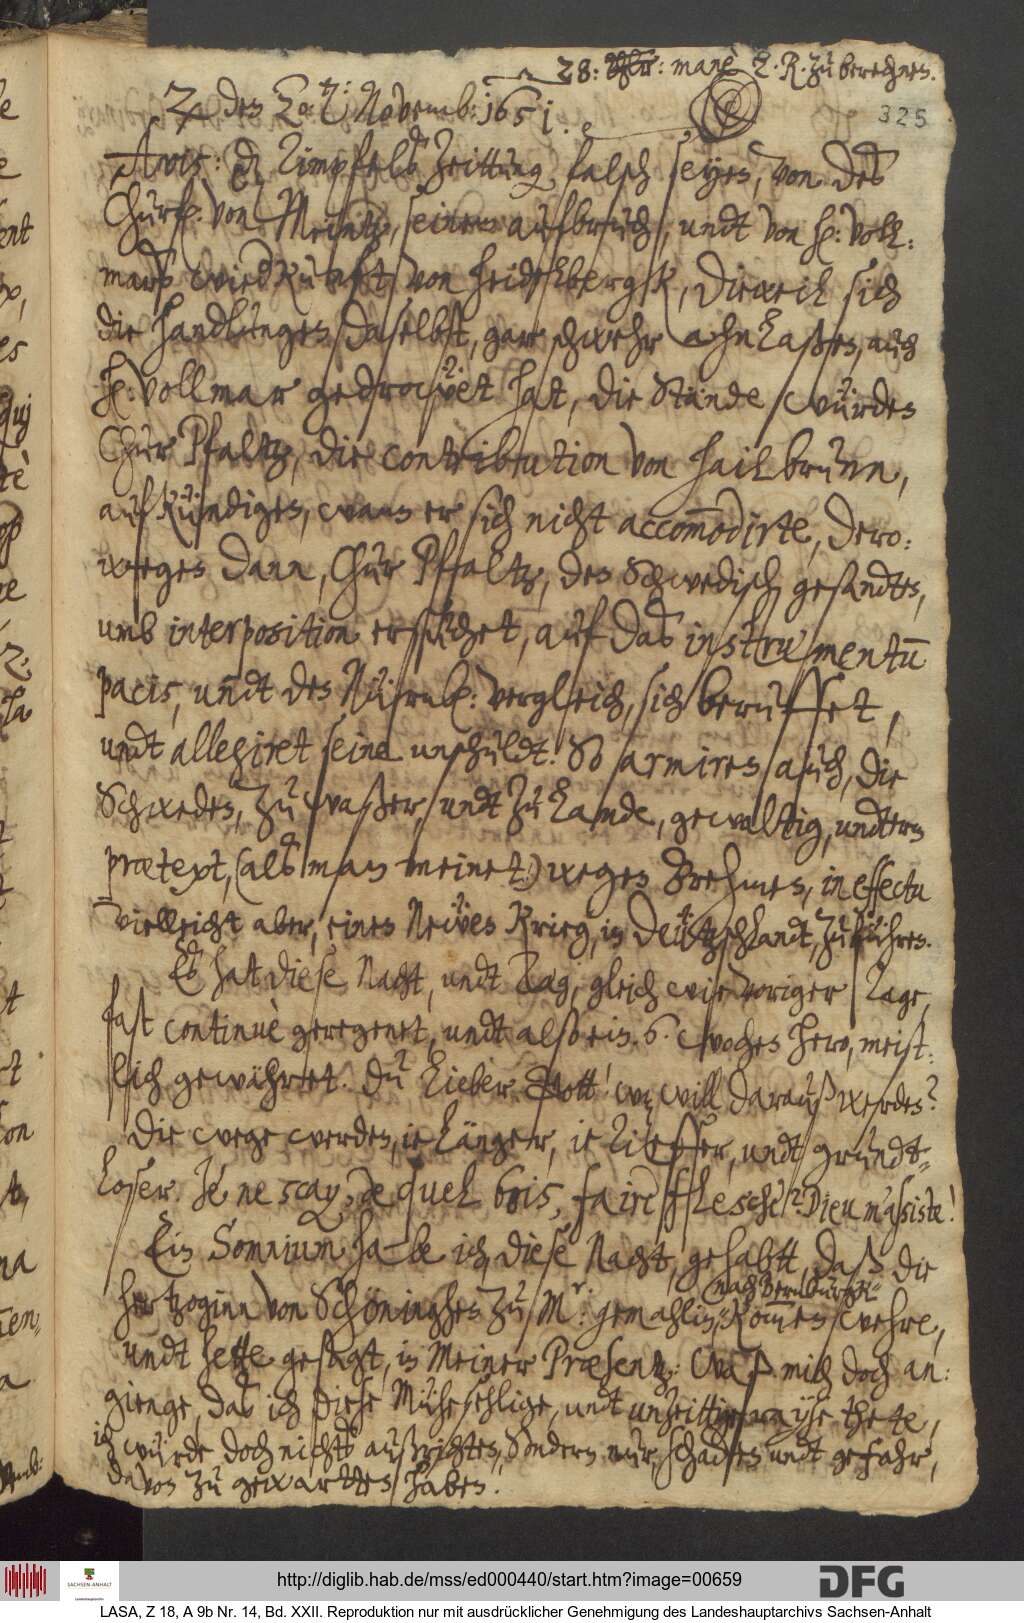 28: mane Z. R. zu berechnen.
325
♃ den 20t: Novemb: 1651.
Avis: daß Limpfelds Zeittung, falsch seyen, von des
Churf: von Meintz, seinem aufbruch, undt von H: Voll:
mars wiederkunft von Heidelbergk, dieweil sich
die handlungen daselbst, gar schwehr ahn laßen, auch
H: Vollmar gedrowet hat, die Stände würden
Chur Pfaltz, die contribution von Hailbrunn,
aufkündigen, wann er sich nicht accommodirte, dero:
wegen dann, Chur Pfaltz, den Schwedisch gesandten,
umb interposition ersuchet, auf das instrumentū
pacis, undt den Nürnb: vergleich, sich beruffet,
undt allegiret seine unschuldt. So armiren auch, die
Schweden, zu waßer, undt zu Lande, gewaltig, undterm
prætext, (als man meinet:) wegen Brehmen, in effectu
vielleicht aber, einen Neuen Krieg, in Deutzschlandt, zu führen.
Es hat diese Nacht, undt Tag, gleich wie voriger Tage,
fast continuè geregenet, undt also ein. 6. wochen hero, meist-
lich gewähret. Du Lieber Gott! waß will darauß werden?
Die wege werden, ie länger, ie tieffer, undt grundt=
loser. Je ne sçay, de quel bois, faire flesche? Dieu m'assiste!
Ein Somnium habe ich diese Nacht, gehabtt, daß die
hertzoginn von Schöninghen zu Mr: gemahlin, nach Bernburgk kommen wehre,
undt hette gesagt, in Meiner Præsentz: Waß mich doch an:
gienge, das ich diese Mühesehlige, undt unzeittige rayse thete,
ich würde doch nichts außrichten, Sondern nur, schaden undt gefahr,
davon zu gewartten haben.
http://diglib.hab.de/mss/ed000440/start.htm?image=00659
SACHSEN-ANHALT
DFG
LASA, Z 18, A 9b Nr. 14, Bd. XXII. Reproduktion nur mit ausdrücklicher Genehmigung des Landeshauptarchivs Sachsen-Anhalt